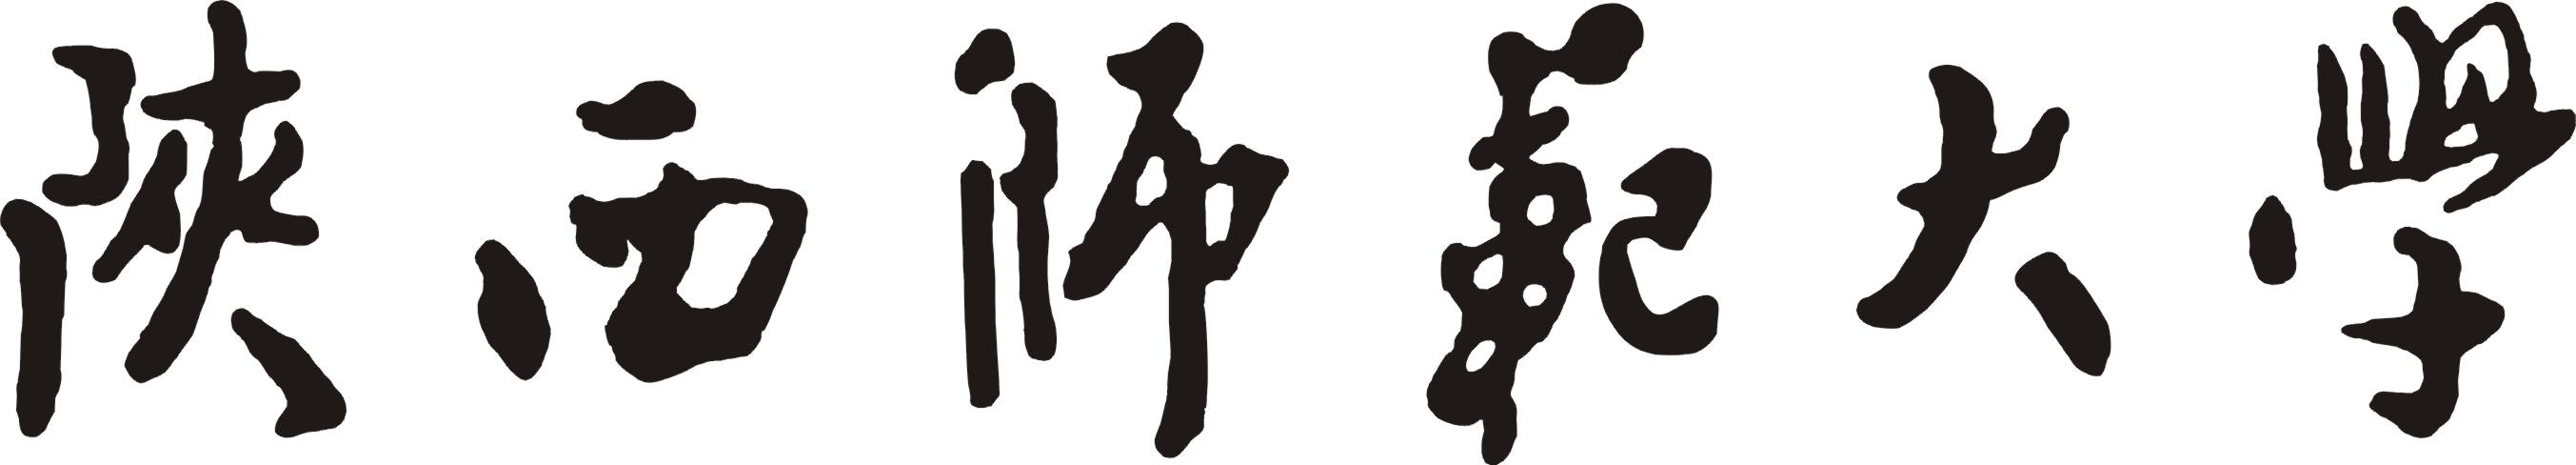 陝西師範大學